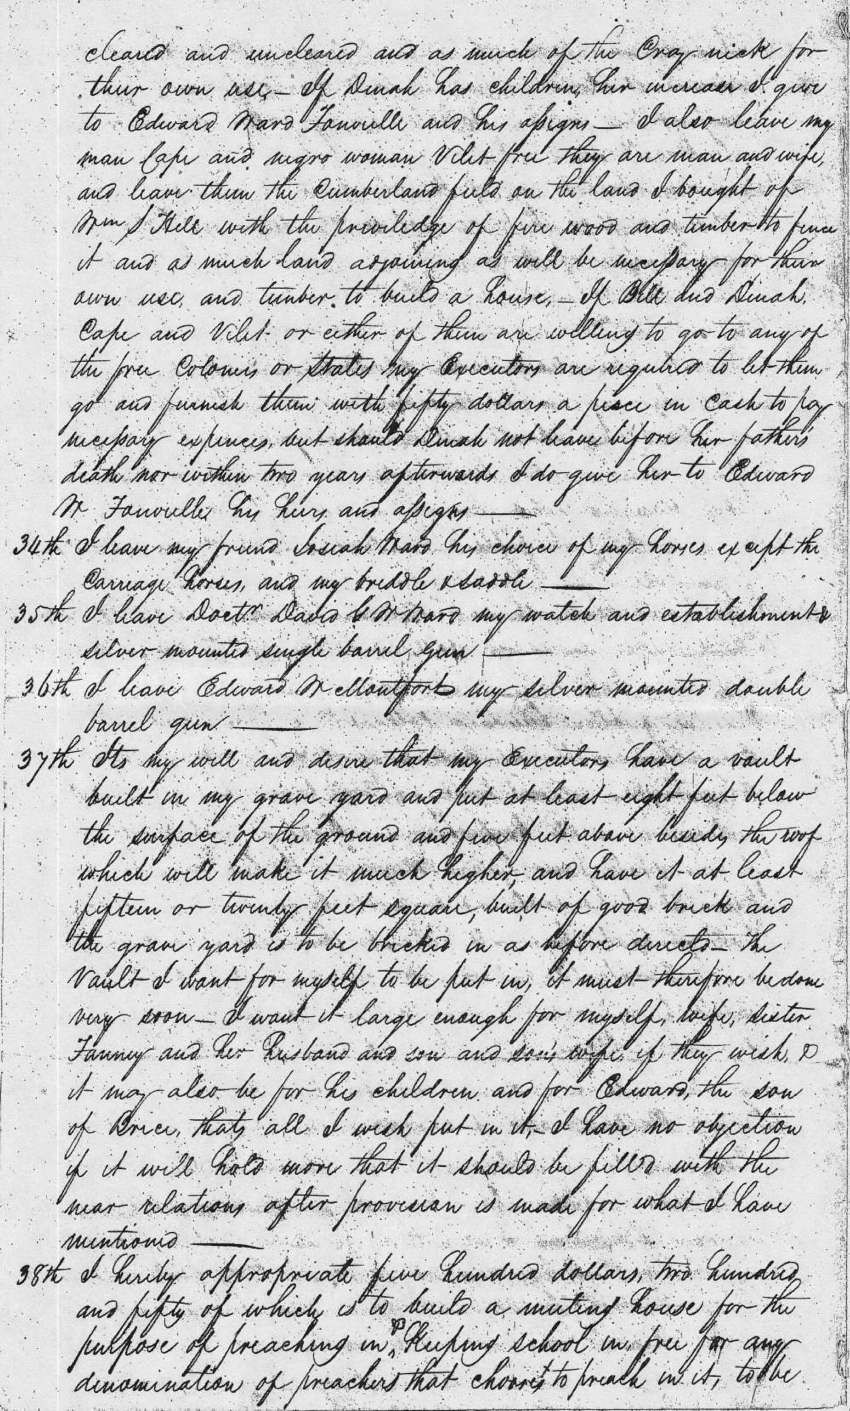 cleared and uncleared and as much of the Cray nick for
their own use,— If Dinah has children, her increase I give
to Edward Ward Fonville and his assigns— I also leave my
man Cape and negro woman Vilet free they are man and wife,
and leave them the Cumberland field on the land I bought of
Wm S Hill with the priviledge of fire wood and timber to fence
it and as much land adjoining as will be necessary for their
own use, and timber to build a house,— If Bill and Dinah,
Cape and Vilet or either of them are willing to go to any of
the free Colonies or States my Executors are required to let them
go and furnish them with fifty dollars a piece in Cash to pay
necessary expences, but should Dinah not leave before her fathers
death nor within two years afterwards I do give her to Edward
W Fonville, his heirs and assigns —
34th I leave my friend Josiah Ward, his choice of my horses except the
Carriage horses, and my briddle & saddle —
35th I leave Doctr David G W Ward my watch and establishment &
silver mounted single barrel gun —
36th I leave Edward W Montfort my silver mounted double
barrel gun —
37th Its my will and desire that my Executors have a vault
built in my grave yard and put at least eight feet below
the surface of the ground and five feet above besides the roof
which will make it much higher, and have it at least
fifteen or twenty feet square, built of good brick and
the grave yard is to be bricked in as before directed— The
Vault I want for myself to be put in, it must therefore be done
very soon— I want it large enough for myself, wife, sister
Fanney and her husband and son and son's wife, if they wish, &
it may also be for his children and for Edward, the son
of Brice, thats all I wish put in it,— I have no objection
if it will hold more that it should be filled with the
near relations after provision is made for what I have
mentioned —
38th I hereby appropriate five hundred dollars, two hundred
and fifty of which is to build a meeting house for the
purpose of preaching in, & Keeping school in, free for any
denomination of preachers that chooses to preach in it, to be